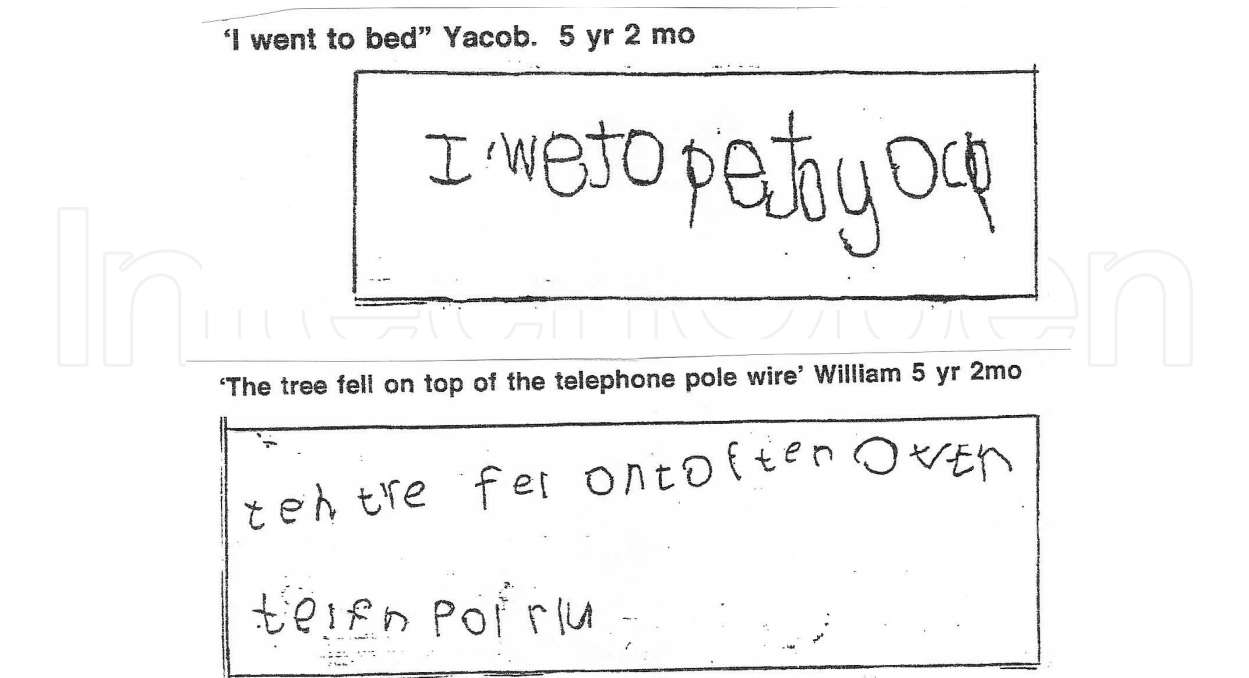 ‘I went to bed” Yacob. 5 yr 2 mo
I weto petby
IntechOpen
‘The tree fell on top of the telephone pole wire’ William 5 yr 2mo
teh tre fel ontof ten OVEn
telfn Pol